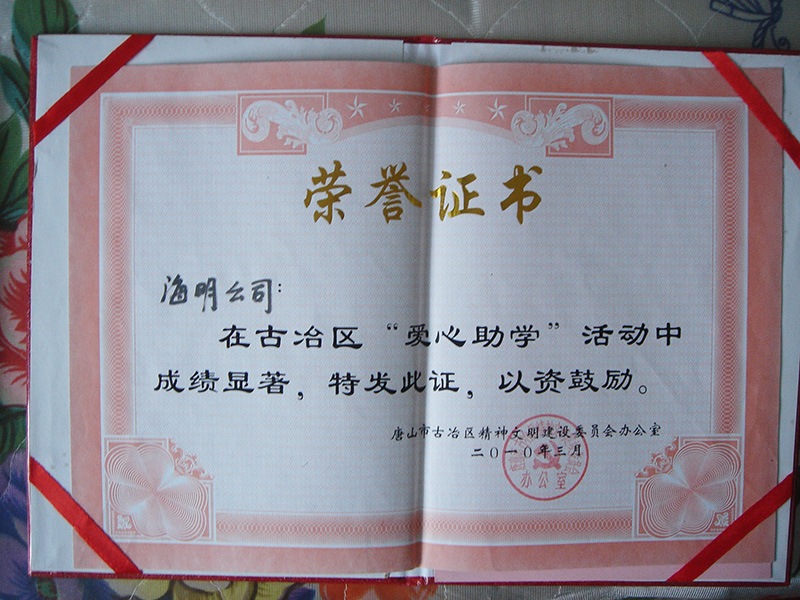 荣誉证书
海明公司：
在古冶区“爱心助学”活动中
成绩显著，特发此证，以资鼓励。
唐山市古冶区精神文明建设委员会办公室
二〇一〇年三月
办公室